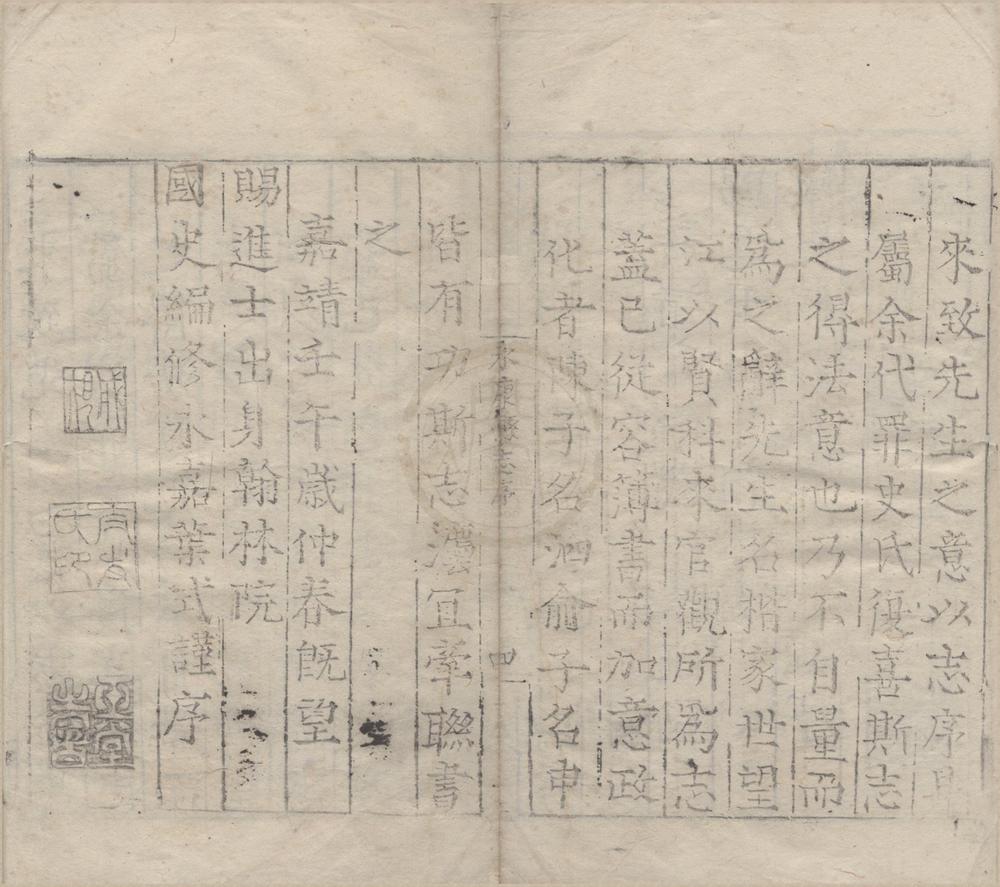 來致先生之意以志序見
屬余代罪史氏復喜斯志
之得法意也乃不自量而
爲之辭先生名楷家世望
江以賢科來官觀所爲志
蓋已從容簿書而加意政
化者陳子名泗俞子名申
永康縣志序
四
皆有功斯志灋宜牽聯書
之
嘉靖壬午歲仲春旣望
賜進士出身翰林院
國史編修永嘉葉式謹序